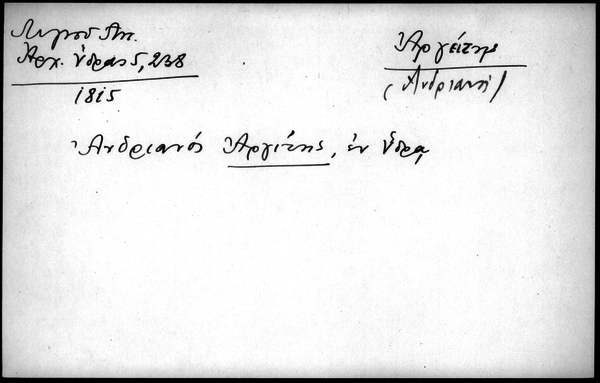 Λιγνοῦ Ἀντ.
Ἀρχ. Ὕδρας 5, 238
1815
Ἀργείτης
(Ἀνδριανός)
Ἀνδριανός Ἀργίτης, ἐν Ὕδρᾳ